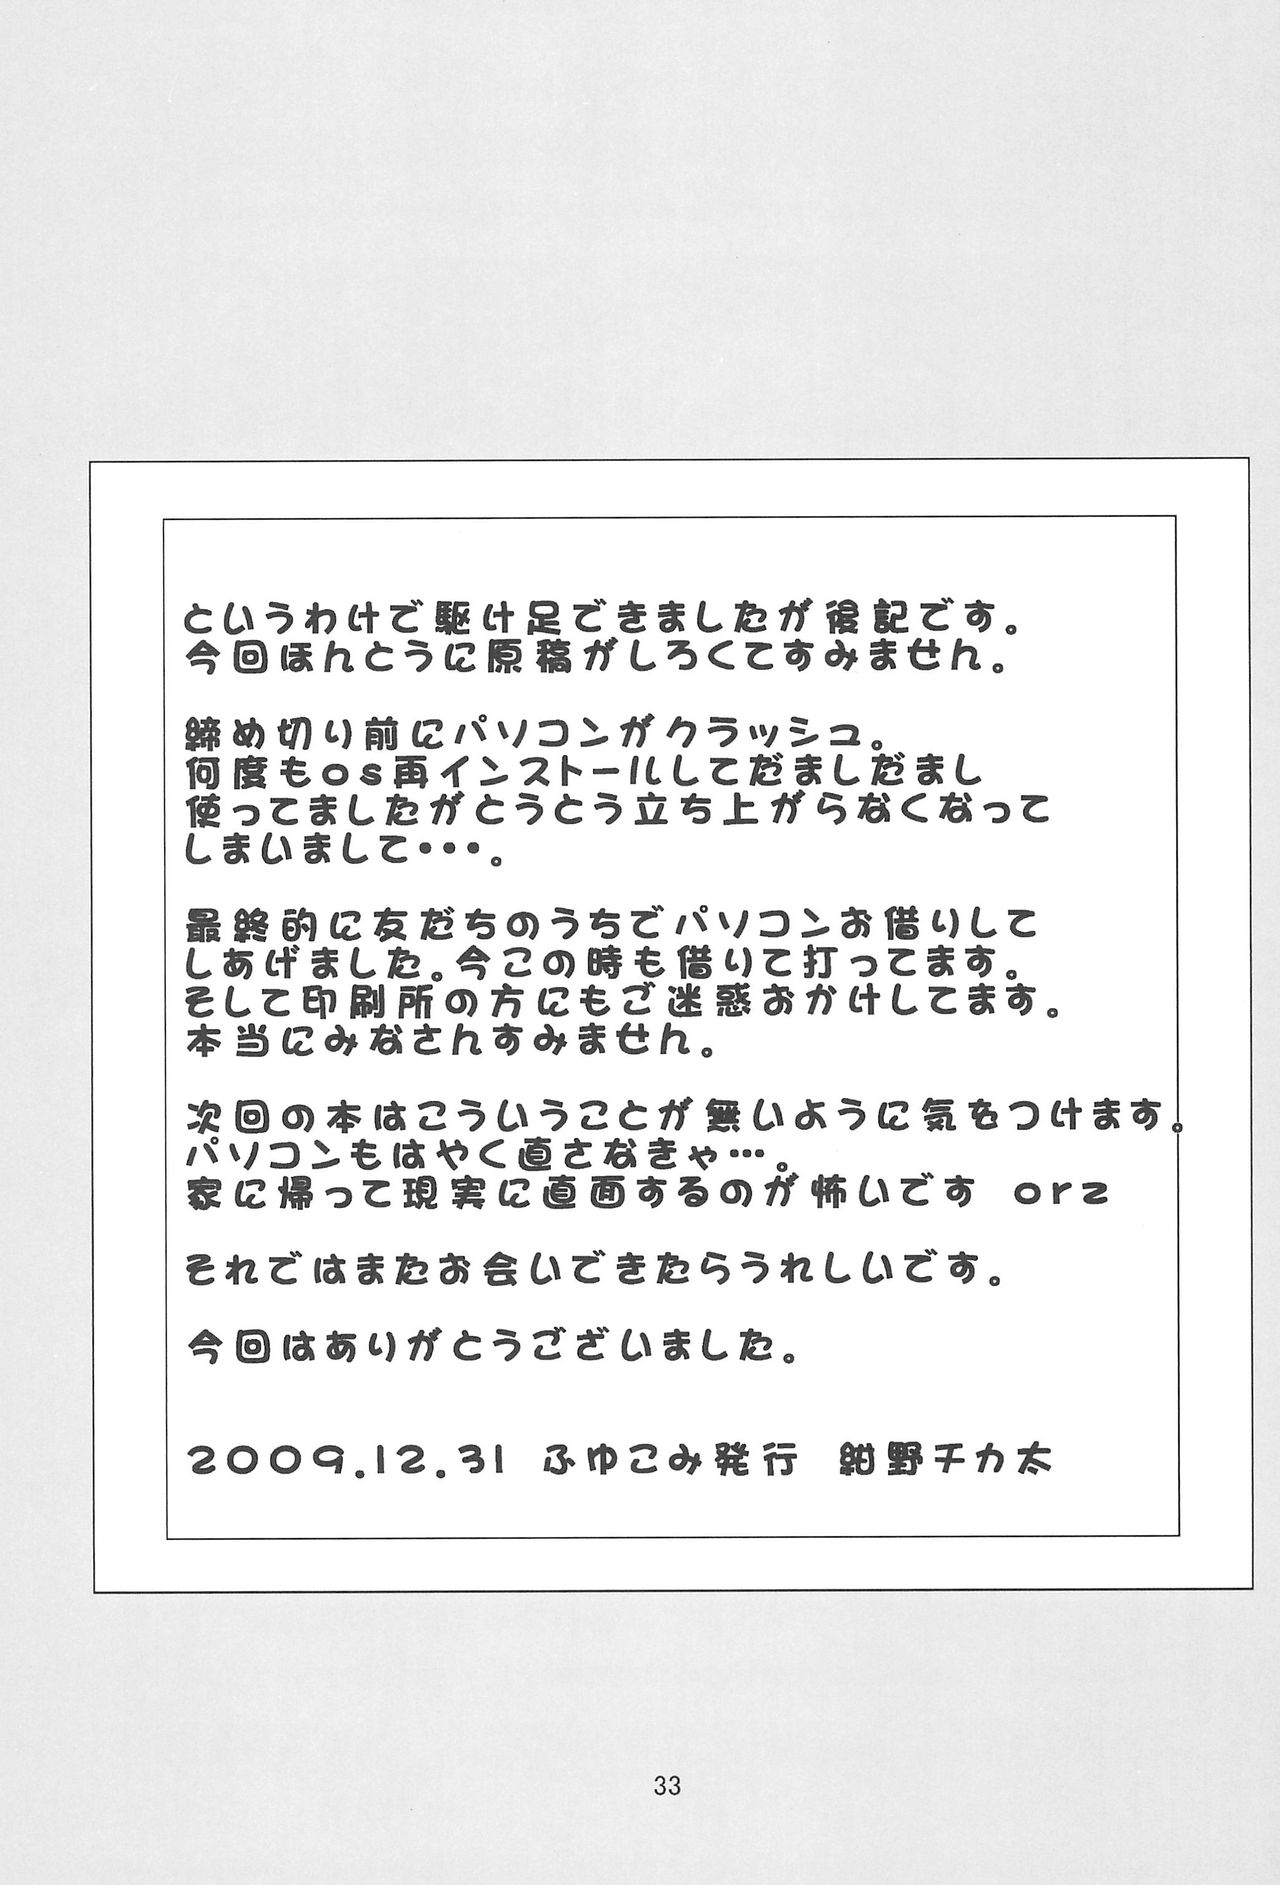 というわけで駆け足できましたが後記です。
今回ほんとうに原稿がしろくてすみません。
締め切り前にパソコンがクラッシュ。
何度もos再インストールしてだましだまし
使ってましたがとうとう立ち上がらなくなって
しまいまして・・・。
最終的に友だちのうちでパソコンお借りして
しあげました。今この時も借りて打ってます。
そして印刷所の方にもご迷惑おかけしてます。
本当にみなさんすみません。
次回の本はこういうことが無いように気をつけます。
パソコンもはやく直さなきゃ…。
家に帰って現実に直面するのが怖いです　orz
それではまたお会いできたらうれしいです。
今回はありがとうございました。
2009.12.31 ふゆこみ発行　紺野チカ太
33